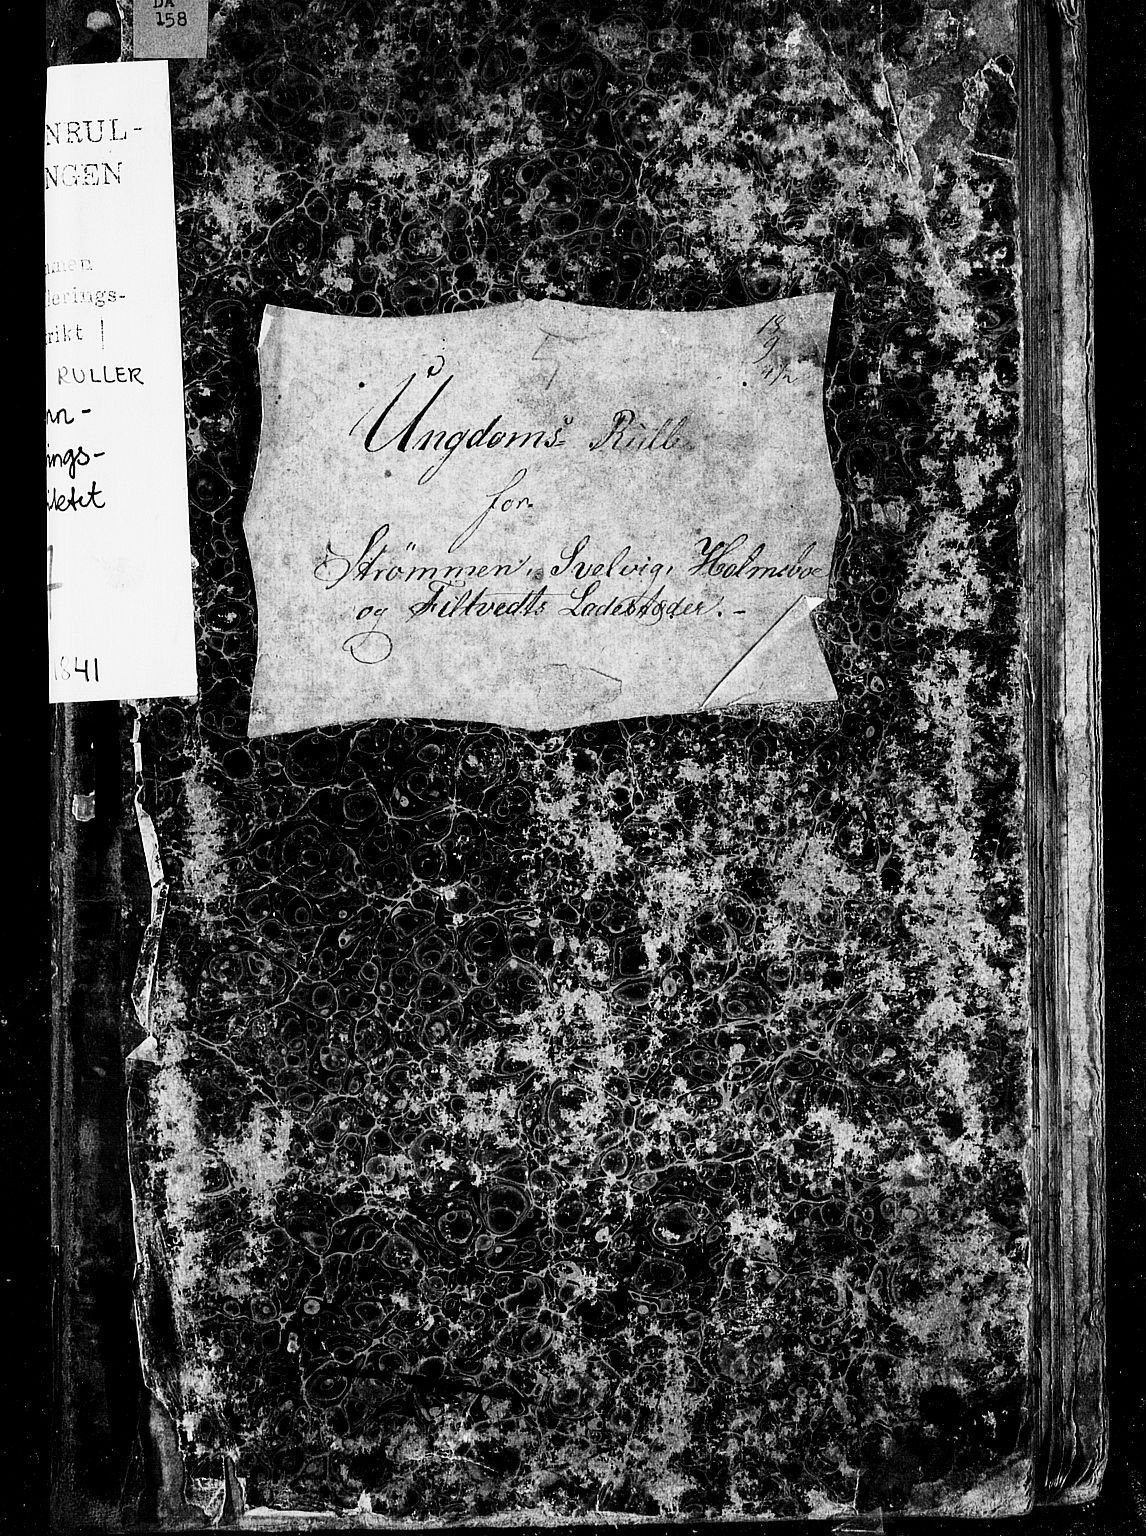 DA
158
NRUL-
NGEN
men
lerings-
rikt
RULLER
nn-
ings-
iktet
1841
18
9
Ungdoms Rulle
for
Strömmen, Svelvig, Holmsboe
og Filtvedts Ladestæder. -